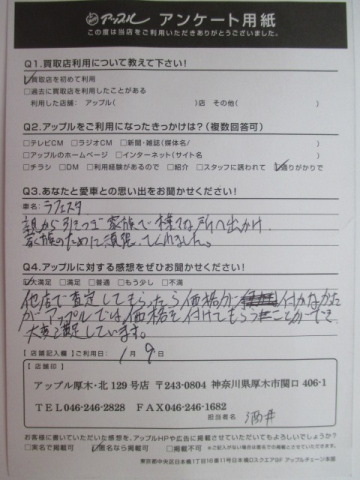 アップル アンケート用紙
この度は当店をご利用いただきありがとうございました。
Q1.買取店利用について教えて下さい!
買取店を初めて利用
□過去に買取店を利用したことがある
利用した店舗: アップル( )店 その他( )
Q2.アップルをご利用になったきっかけは?(複数回答可)
□テレビCM □ラジオCM □新聞・雑誌(媒体名/ )
□アップルのホームページ □インターネット(サイト名 )
□チラシ □DM □利用経験があるので □紹介 □スタッフに誘われて 通りがかりで
Q3.あなたと愛車との思い出をお聞かせください!
車名: ラフェスタ
親から引きつぎ家族で様々な所へ出かけ
家族のために頑張ってくれました。
Q4.アップルに対する感想をぜひお聞かせください!
大満足 □満足 □普通 □もう少し □不満
他店で査定してもらったら価格が付かなかった
がアップルでは価格を付けてもらうことができ
大変満足しています。
【店舗記入欄】ご利用日: 1月9日
【店舗印】
アップル厚木・北129号店 〒243-0804 神奈川県厚木市関口 406-1
TEL046-246-2828 FAX046-246-1682
担当者名 酒井
お客様に書いていただいた感想を、アップルHPや広告に掲載させていただいてもよろしいでしょうか?
□実名で掲載可 匿名なら掲載可 □掲載不可
東京都中央区日本橋1丁目10番11号日本橋口スクエア9F アップルチェーン本部